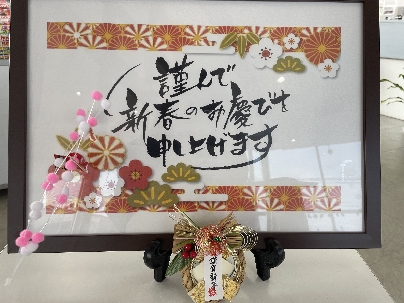 謹んで
新春のお慶びを
申し上げます
謹賀新年